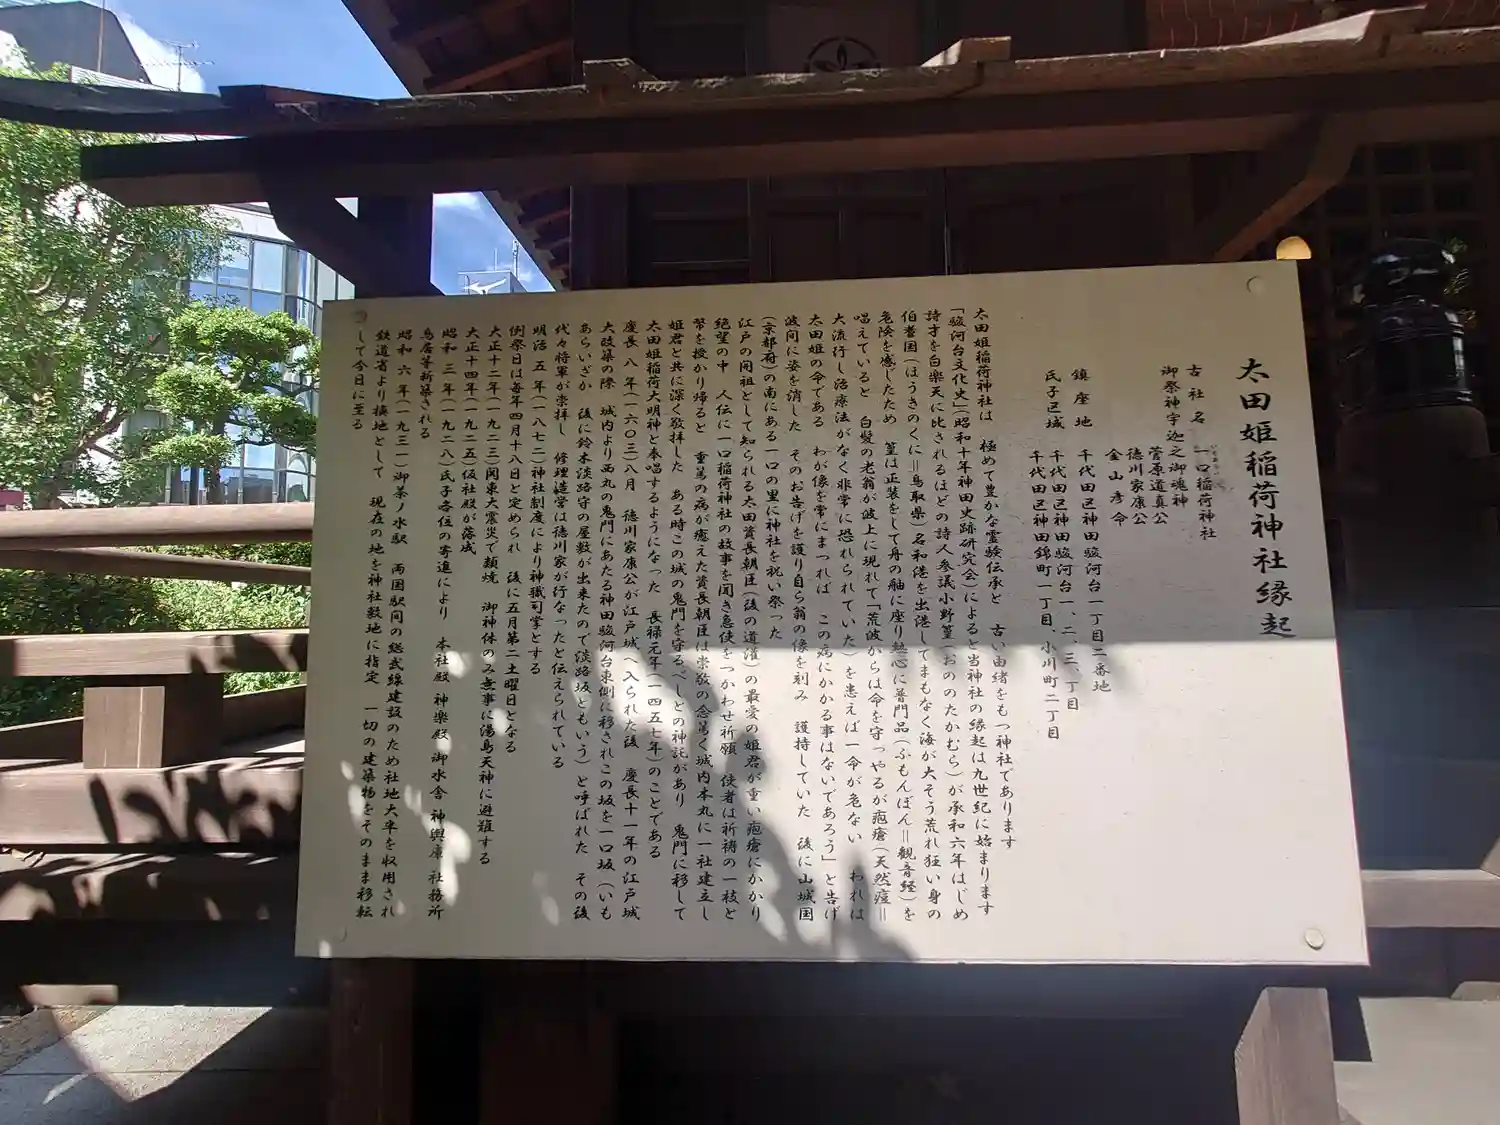 太田姫稲荷神社縁起
古社名 一口稲荷神社
いもあらい
御祭神 宇迦之御魂神
菅原道真公
徳川家康公
金山彦命
鎮座地 千代田区神田駿河台一丁目二番地
氏子区域 千代田区神田駿河台一、二、三、丁目
千代田区神田錦町一丁目、小川町二丁目
太田姫稲荷神社は 極めて豊かな霊験伝承と 古い由緒をもつ神社であります
「駿河台文化史」(昭和十年神田史跡研究会)によると当神社の縁起は九世紀に始まります
詩才を白楽天に比されるほどの詩人参議小野篁(おののたかむら)が承和六年はじめ
伯耆国(ほうきのくに=鳥取県)名和港を出港してまもなく海が大そう荒れ狂い身の
危険を感じたため 篁は正装をして舟の舳に座り熱心に普門品(ふもんぼん=観音経)を
唱えていると 白髪の老翁が波上に現れて「荒波からは命を守つやるが疱瘡(天然痘=
大流行し治療法がなく非常に恐れられていた)を患えば一命が危ない われは
太田姫の命である わが像を常にまつれば この病にかかる事はないであろう」と告げ
波間に姿を消した そのお告げを護り自ら翁の像を刻み 護持していた 後に山城国
(京都府)の南にある一口の里に神社を祝い祭った
江戸の開祖として知られる太田資長朝臣(後の道灌)の最愛の姫君が重い疱瘡にかかり
絶望の中 人伝に一口稲荷神社の故事を聞き急使をつかわせ祈願 使者は祈祷の一枝と
幣を授かり帰ると 重篤の病が癒えた資長朝臣は崇敬の念篤く城内本丸に一社建立し
姫君と共に深く敬拝した ある時この城の鬼門を守るべしとの神託があり 鬼門に移して
太田姫稲荷大明神と奉唱するようになった 長禄元年(一四五七年)のことである
慶長八年(一六〇三)八月 徳川家康公が江戸城へ入られた後 慶長十一年の江戸城
大改築の際 城内より西丸の鬼門にあたる神田駿河台東側に移されこの坂を一口坂(いも
あらいざか 後に鈴木淡路守の屋敷が出来たので淡路坂ともいう)と呼ばれた その後
代々将軍が崇拝し 修理造営は徳川家が行なったと伝えられている
明治 五 年(一八七二)神社制度により神職司掌とする
例祭日は毎年四月十八日と定められ 後に五月第二土曜日となる
大正十二年(一九二三)関東大震災で類焼 御神体のみ無事に湯島天神に避難する
大正十四年(一九二五)仮社殿が落成
昭和 三 年(一九二八)氏子各位の寄進により 本社殿 神楽殿 御水舎 神輿庫 社務所
鳥居等新築される
昭和 六 年(一九三一)御茶ノ水駅 両国駅間の総武線建設のため社地大半を収用され
鉄道省より換地として 現在の地を神社敷地に指定 一切の建築物をそのまま移転
して今日に至る